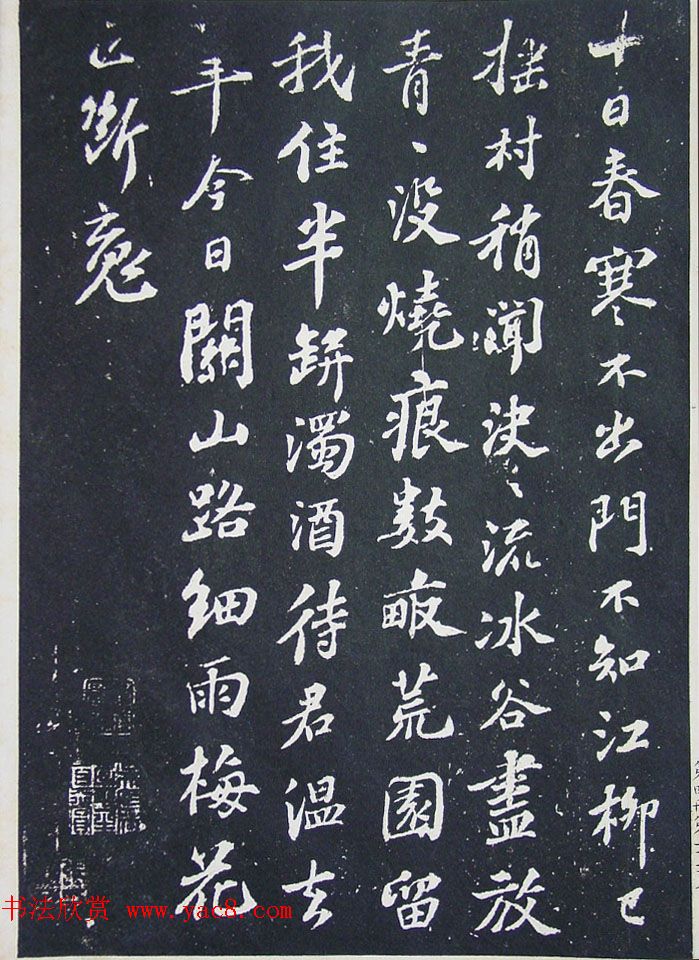 十日春寒不出門不知江柳已
搖村稍聞決〻流冰谷盡放
青〻沒燒痕數畝荒園留
我住半缾濁酒待君溫去
年今日關山路細雨梅花
正斷魂
书法欣赏 www.yac8.com